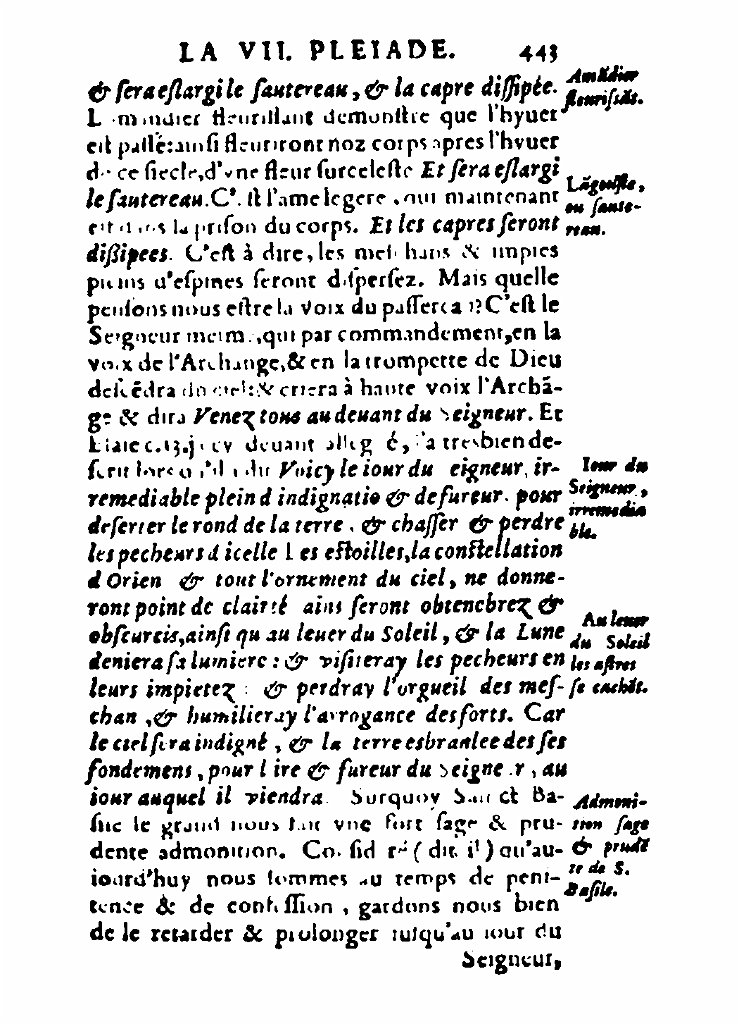 LA VII. PLEIADE. 443
& sera eslargi le sautereau, & la capre dissipée.
Amãdier
fleurissãt.
fleurissant demonstre que l'hyuer
est passé: ainsi fleuriront noz corps apres l'hyuer
de ce siecle, d'vne fleur surceleste Et sera eslargi
le sautereau. C'est l'ame legere, qui maintenant
Lãgouste,
ou saute-
reau.
est dans la prison du corps. Et les capres seront
dißipees. C'est à dire, les meschans & impies
pleins d'espines seront dispersez. Mais quelle
pensons nous estre la voix du passereau? C'est le
Seigneur mesme, qui par commandement, en la
voix de l'Archange, & en la trompette de Dieu
descẽdra du ciel: & criera à haute voix l'Archã-
ge & dira Venez tous au deuant du Seigneur. Et
Esaie c.13. deuant allegué, l'a tresbien de-
script Voicy le iour du Seigneur, ir-
Iour du
Seigneur,
irremedia
ble.
remediable plein d indignatiõ & de fureur. pour
deserter le rond de la terre, & chasser & perdre
les pecheurs d icelle Les estoilles, la constellation
d Orien & tout l'ornement du ciel, ne donne-
ront point de clairté ains seront obtenebrez &
obscurcis, ainsi qu au leuer du Soleil, & la Lune
Au leuer
du Soleil
les astres
se cachẽt.
deniera sa lumiere: & visiteray les pecheurs en
leurs impietez: & perdray l'orgueil des mes-
chan, & humilieray l'arrogance des forts. Car
le ciel sera indigné, & la terre esbranlee de ses
fondemens, pour l ire & fureur du Seigneur, au
iour auquel il viendra. Surquoy Sainct Ba-
Admoni-
tion sage
& prudẽ
te de S.
Basile.
sile le grand nous fait vne fort sage & pru-
dente admonition. (dit il) qu'au-
iourd'huy nous sommes au temps de peni-
tence & de confession, gardons nous bien
de le retarder & prolonger iusqu'au iour du
Seigneur,